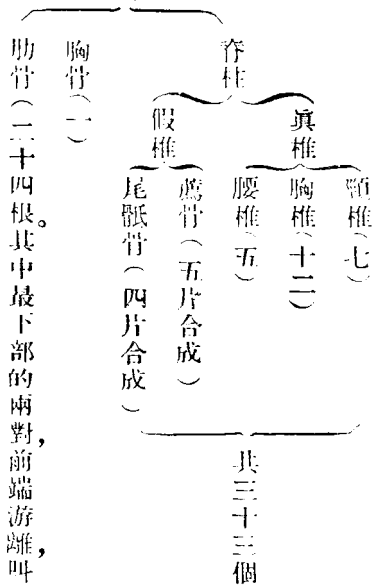 脊柱
眞椎
頸椎（七）
胸椎（十二）
腰椎（五）
假椎
薦骨（五片合成）
尾骶骨（四片合成）
共三十三個
胸骨（一）
肋骨（二十四根。其中最下部的兩對，前端游離，叫